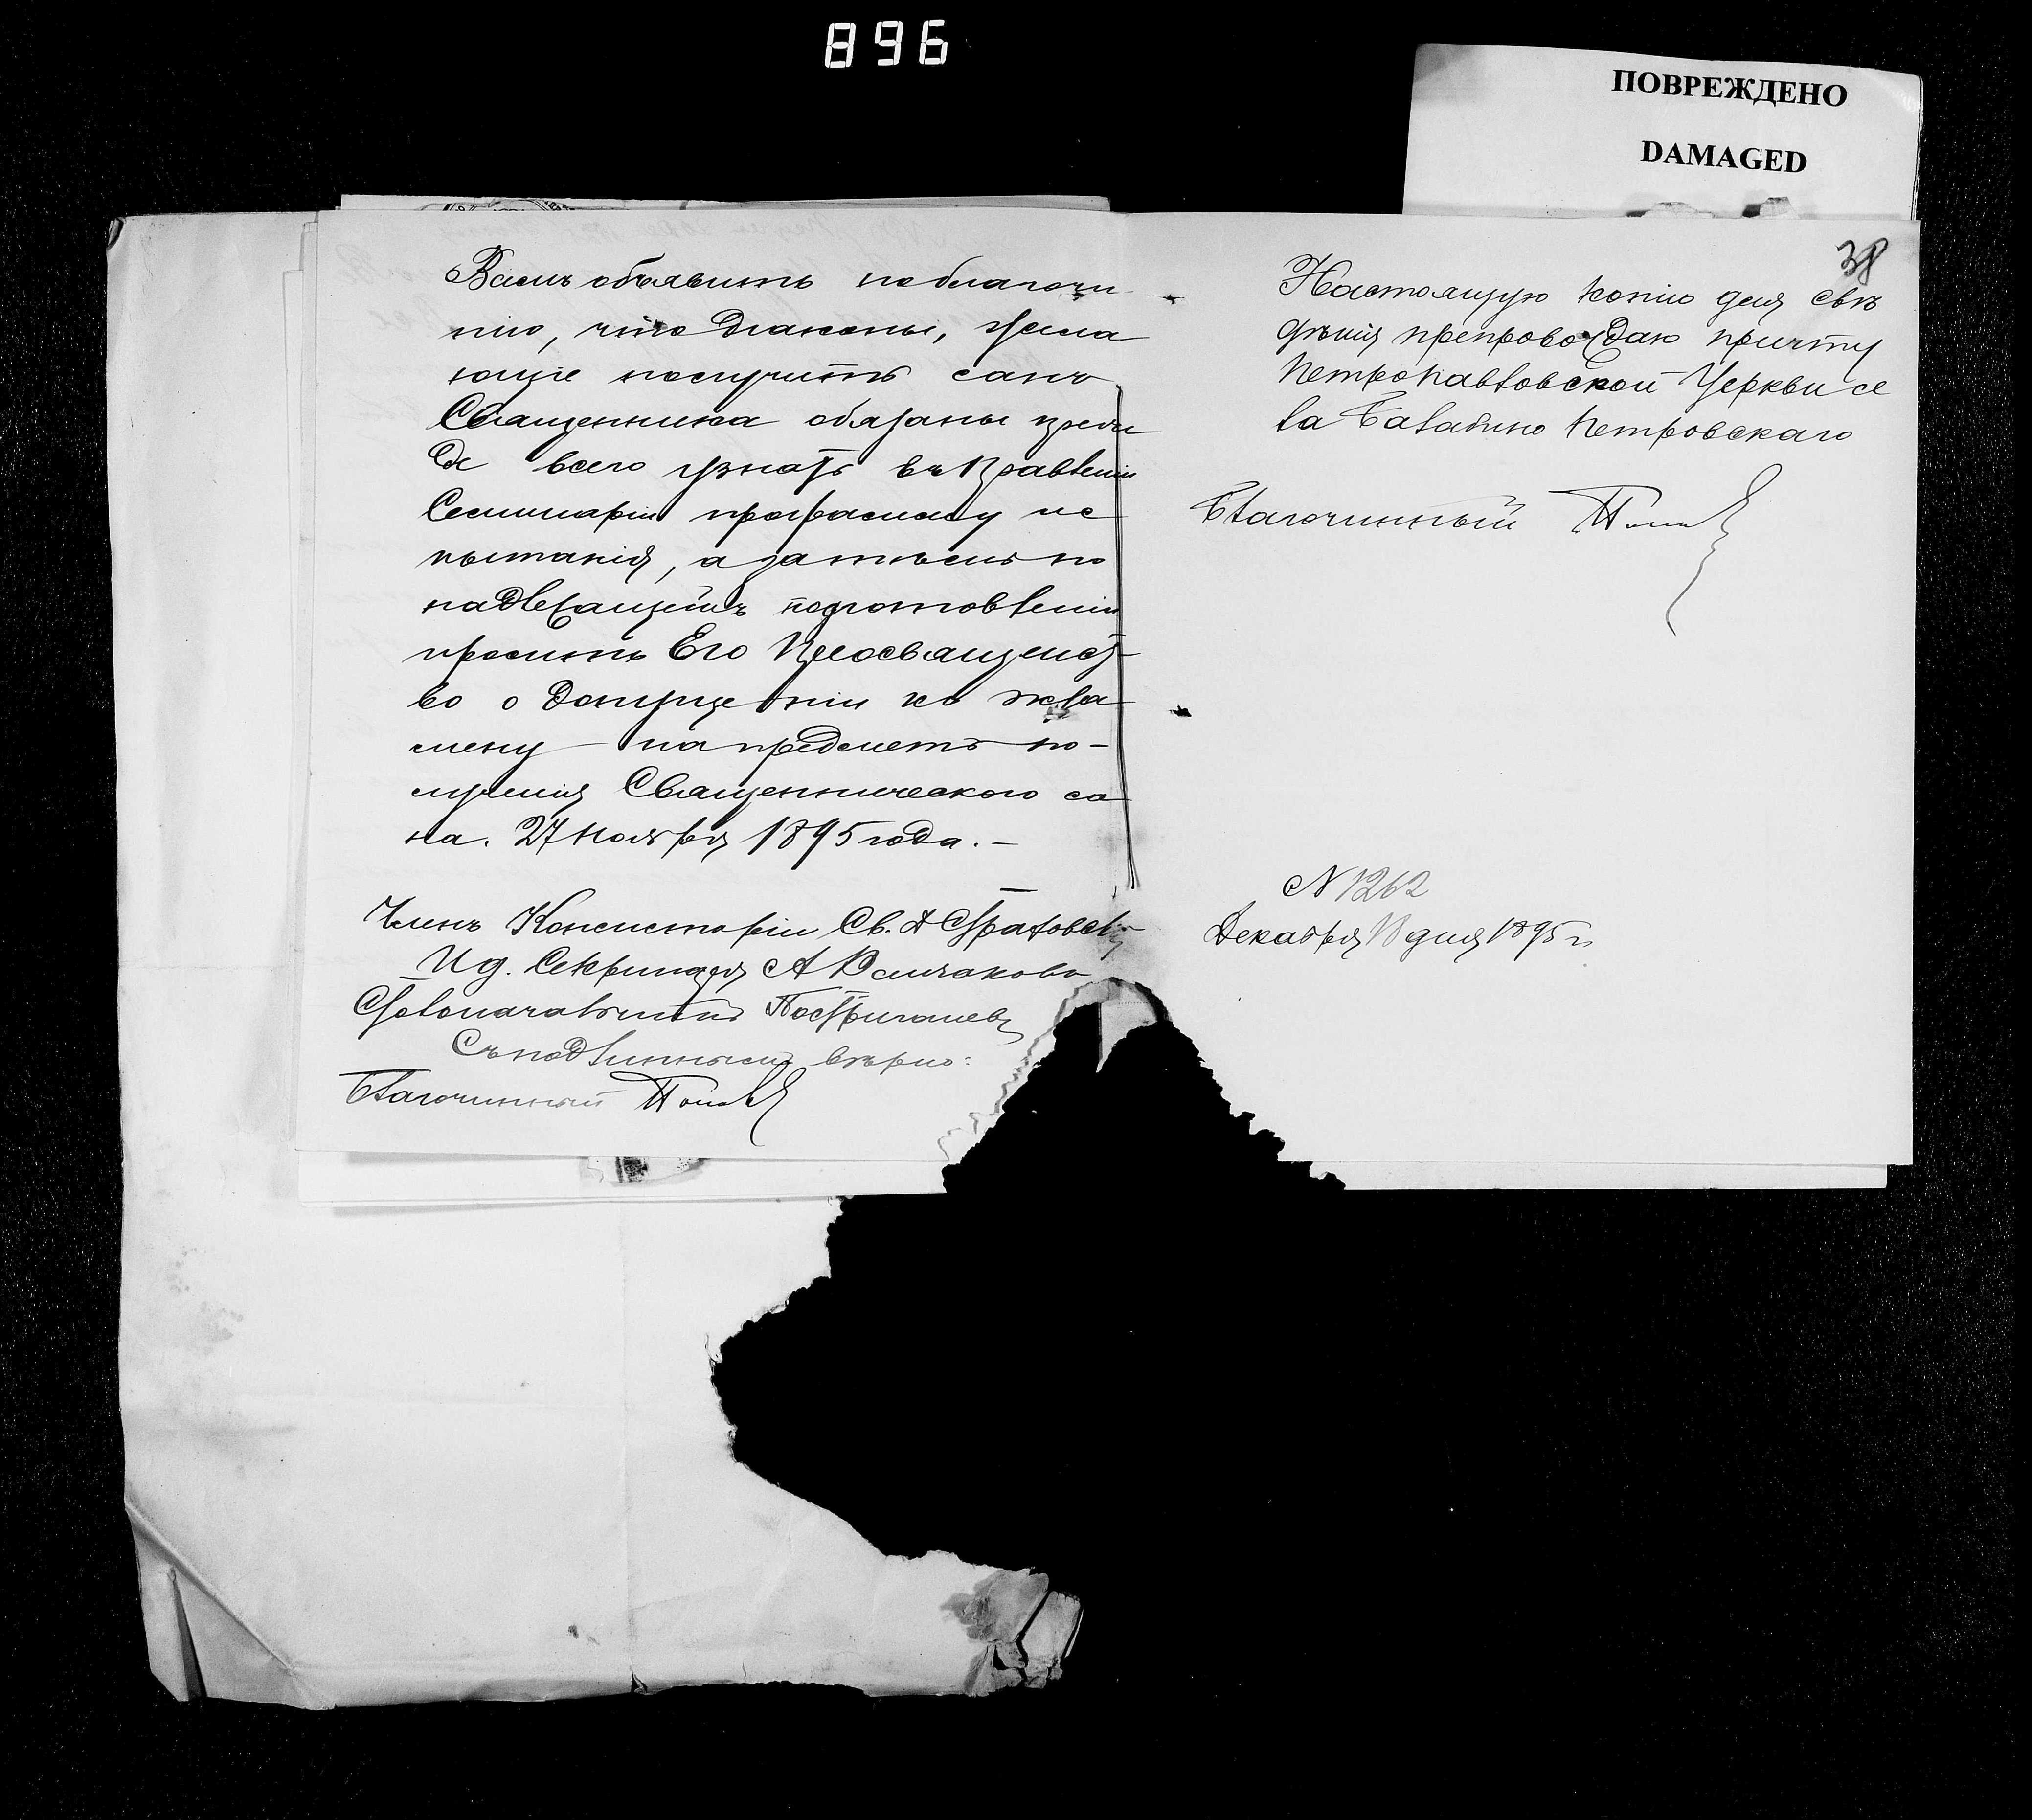 896
ПОВРЕЖДЕНО
DAMAGED
Вамъ объявить по благочи
нію, что діаконы, жела
ющіе получить санъ
Священника обязаны преж
де всего узнать въ Правленіи
Семинаріи программу ис
пытанія, а затѣмъ по
надлежащемъ подготовленіи
просить Его Преосвященст
во о допущеніи къ экза
мену – на предметъ по-
лученія Священническаго са
на. 27 Ноября 1895 года. –
Членъ Консисторіи Св. А
И д. Секретаря А
Столоначальникъ
Съ подлиннымъ вѣрно:
Благочинный Поповъ
38
Настоящую копію для свѣ
дѣнія препровождаю причту
Петропавловской Церкви се
ла Балабино Петровскаго
Благочинный Поповъ
N 1262
Декабря 18 дня 1895 г.